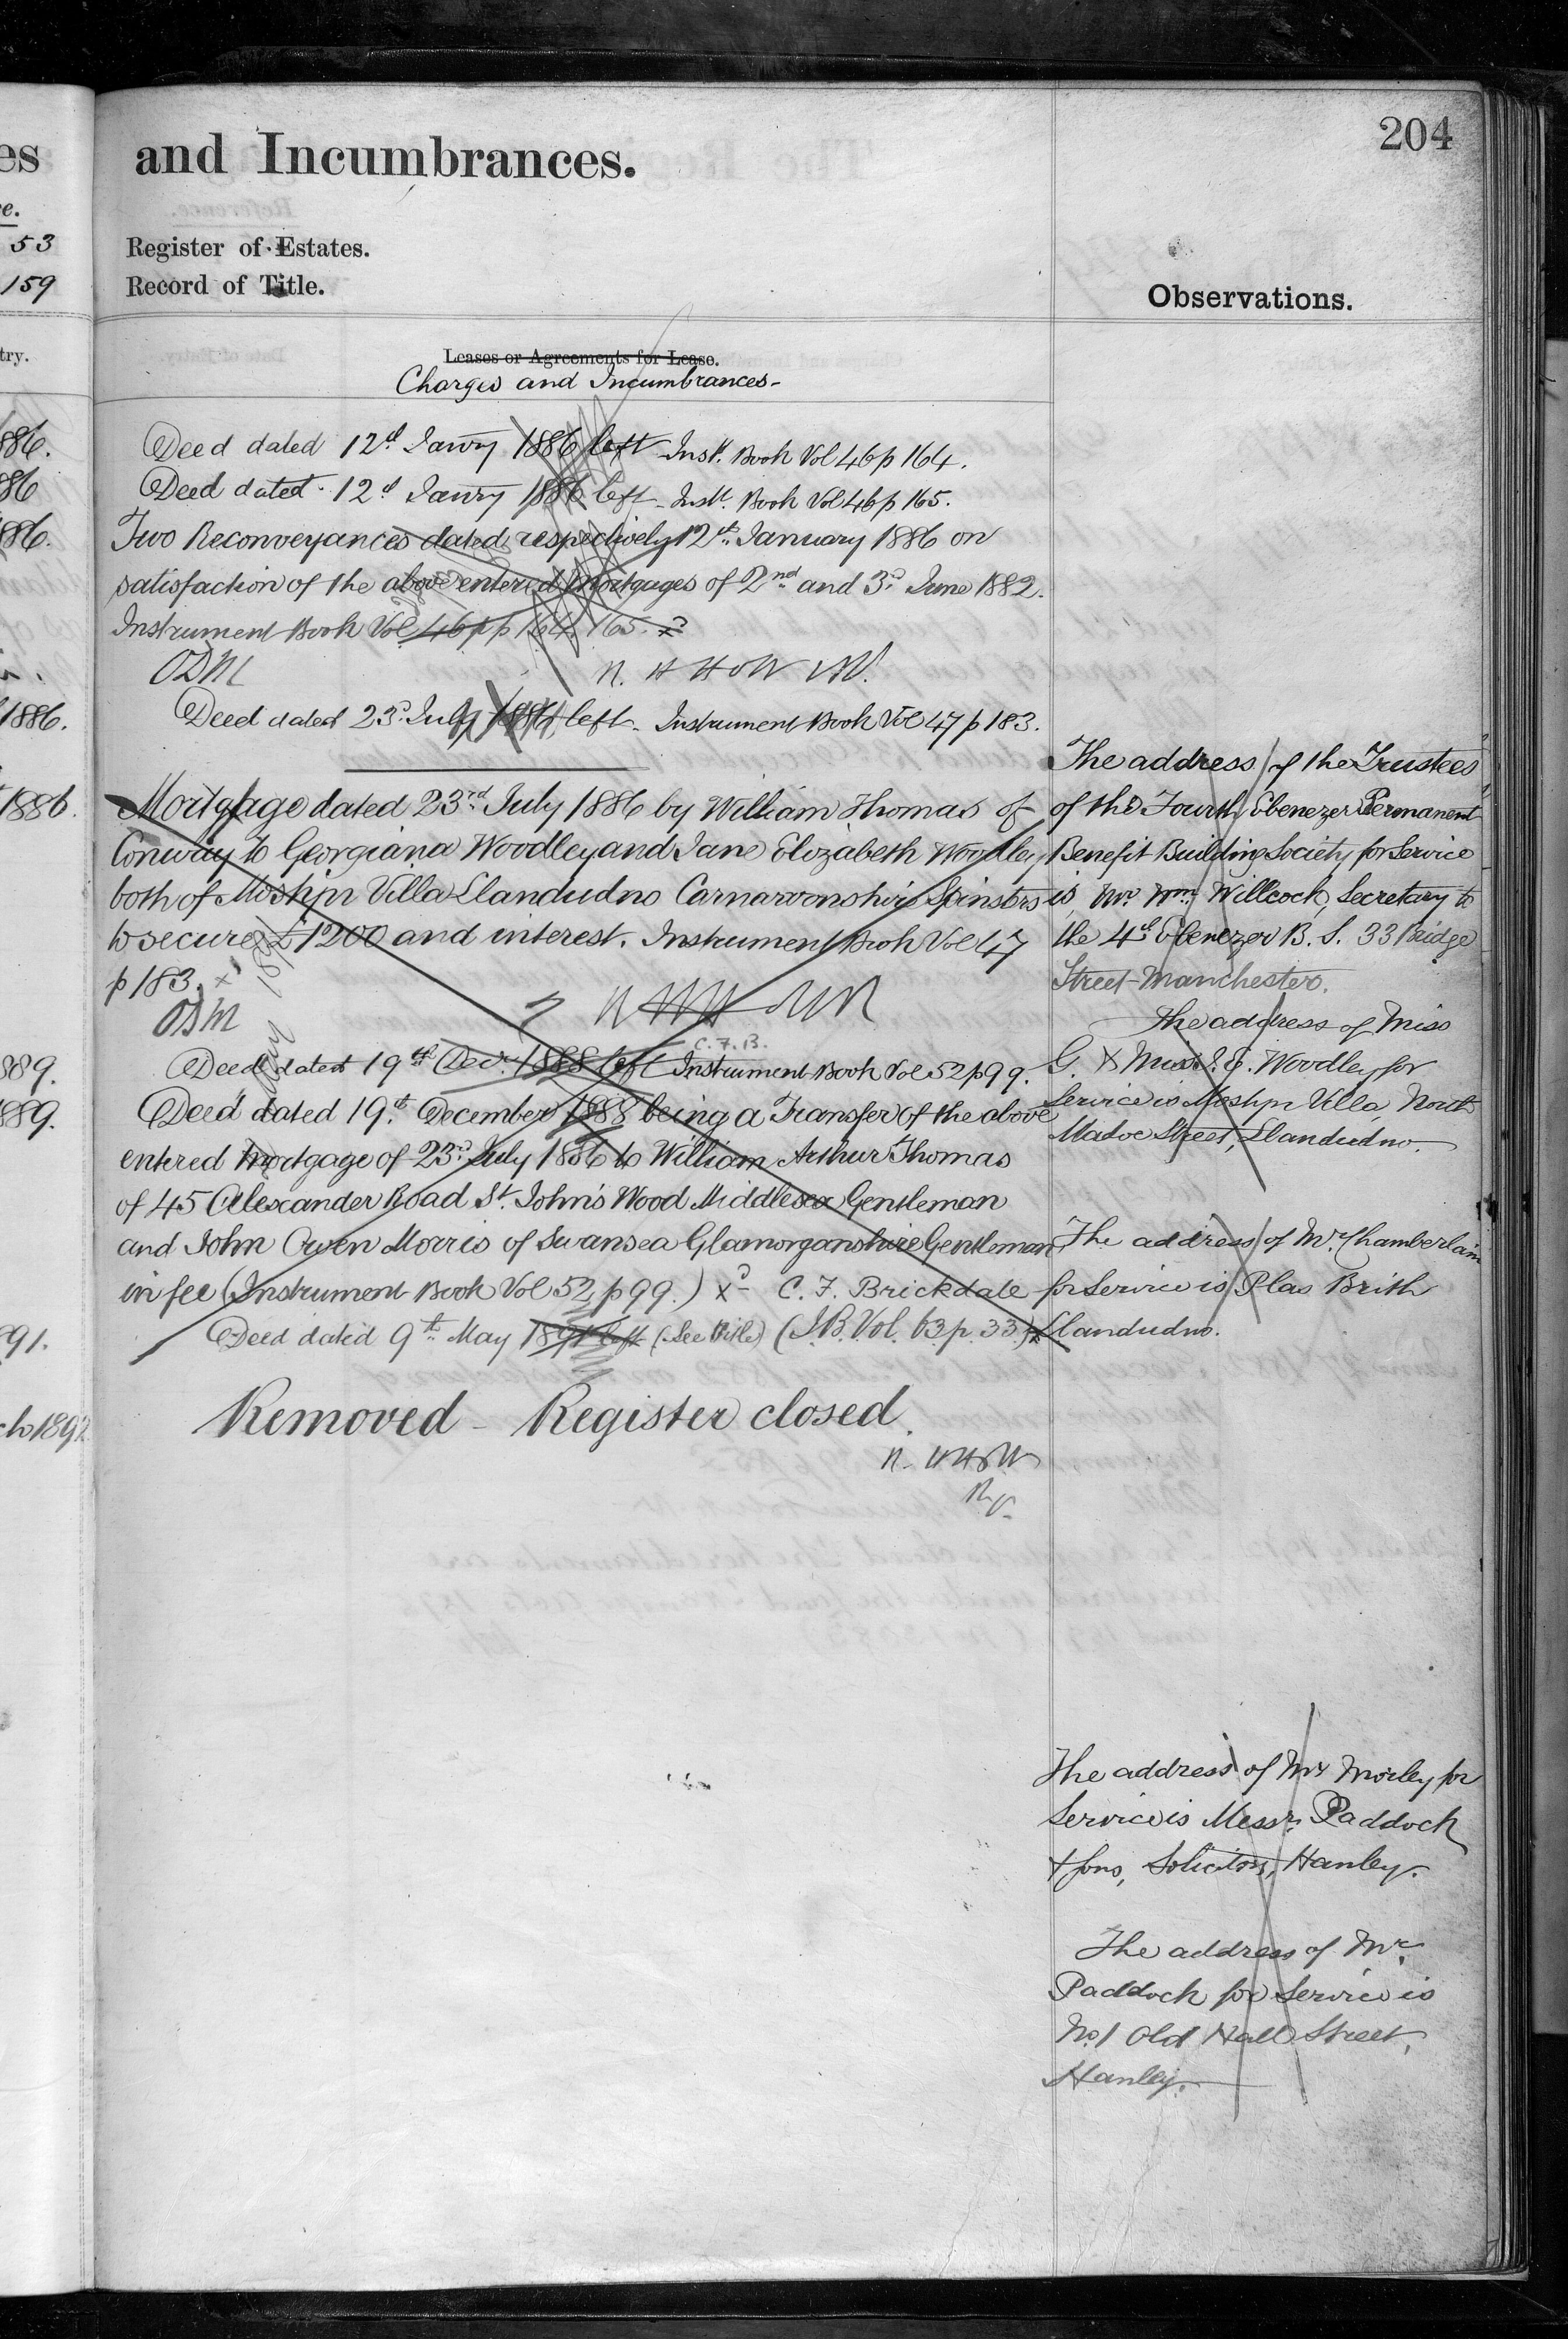 es
e.
53
159
try.
886.
86
886.
1886.
1886.
889.
889.
891.
ch 1892
204
and Incumbrances.
Register of Estates.
Record of Title.
Observations.
Leases or Agreements for Lease.
Charges and Incumbrances-
Deed dated 12th Janry 1886 left Inst. Book Vol 46 p 164.
Deed dated 12th Janry 1886 left Inst. Book Vol 46 p 165.
Two Reconveyances dated respectively 12th January 1886 on
satisfaction of the above entered Mortgages of 2nd and 3d June 1882.
Instrument Book Vol 46 pp 164, 165. xd
ODM
Deed dated 23d July 1886 left - Instrument Book Vol 47 p 183.
Mortgage dated 23rd July 1886 by William Thomas of
Conway to Georgiana Woodley and Jane Elizabeth Woodley
both of Mostyn Villa Llandudno Carnarvonshire Spinsters
to secure £1200 and interest. Instrument Book Vol 47
p 183. xd
ODM
C.F.B.
Deed dated 19th Decr. 1888 left Instrument Book Vol 52 p 99.
Deed dated 19th December 1888 being a Transfer of the above
entered Mortgage of 23d July 1886 to William Arthur Thomas
of 45 Alexander Road St. John's Wood Middlesex Gentleman
and John Owen Morris of Swansea Glamorganshire Gentleman
in fee (Instrument Book Vol 52, p 99.) xd C. F. Brickdale
Deed dated 9th May 1891 left (See Title) (I.B. Vol. 63 p. 33) x
Removed - Register closed.
The address of the Trustees
of the Fourth Ebenezer Permanent
Benefit Building Society for Service
is Mr. Wm. Willcock, Secretary to
the 4th Ebenezer B. S. 33 Bridge
Street Manchester.
The address of Miss
G. & Miss J. E. Woodley for
Service is Mostyn Villa, North
Madoc Street, Llandudno.
The address of Mr Chamberlain
for Service is Plas Brith
Llandudno.
The address of Mr Morley for
Service is Messrs. Paddock
& Sons, Solicitors, Hanley.
The address of Mr.
Paddock for Service is
No. 1 Old Hall Street,
Hanley.